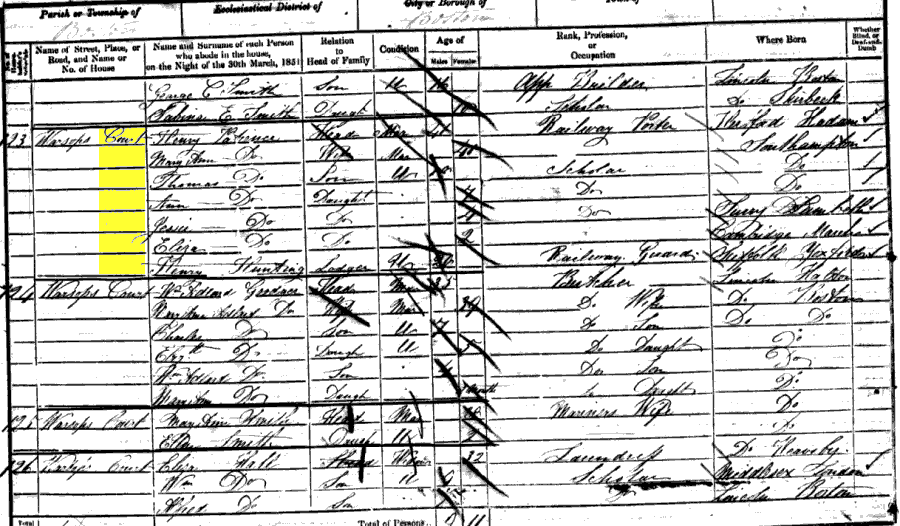 Parish or Township of Ecclesiastical District of City or Borough of Town of
Boston Boston
Name of Street, Place, or Road, and Name or No. of House
Name and Surname of each Person who abode in the house, on the Night of the 30th March, 1851
Relation to Head of Family
Condition
Age of
Males Females
Rank, Profession, or Occupation
Where Born
Whether Blind, or Deaf-and-Dumb
George C Smith Son U 16 App Builder Lincoln Boston
Sabina E Smith Daugh Scholar Do Skirbeck
123 Warsops Court Henry Head Mar Railway Porter
Mary Ann Do Wife Mar Southampton
Thomas Do Son U 10 Scholar Do
Ann Do Daught 7 Do Do
Jessie Do Do 4 Do Surry Lambeth
Eliza Do Do 2 Cambridge March
Henry Hunting Lodger U Railway Guard Suffolk Yoxford
124 Warsops Court Wm Gardner Head Mar Butcher Lincoln
Mary Ann Do Wife Mar 29 Do Wife Do Boston
Charles Do Son U 7 Do Son Do Do
Elizth Do Daugh U 5 Do Daught Do
Wm Do Son Do Son Do
Mary Ann Do Daugh Do Daught Do
125 Warsops Court Mary Ann Smith Head Mar Mariners Wife Do
Ellen Smith Daugh U 2 Do
126 Court Eliza Hall Head Widow 32 Laundress Do
Wm Do Son U Scholar Middlesex London
Alfred Do Son Do Lincoln Boston
Total Total of Persons 11